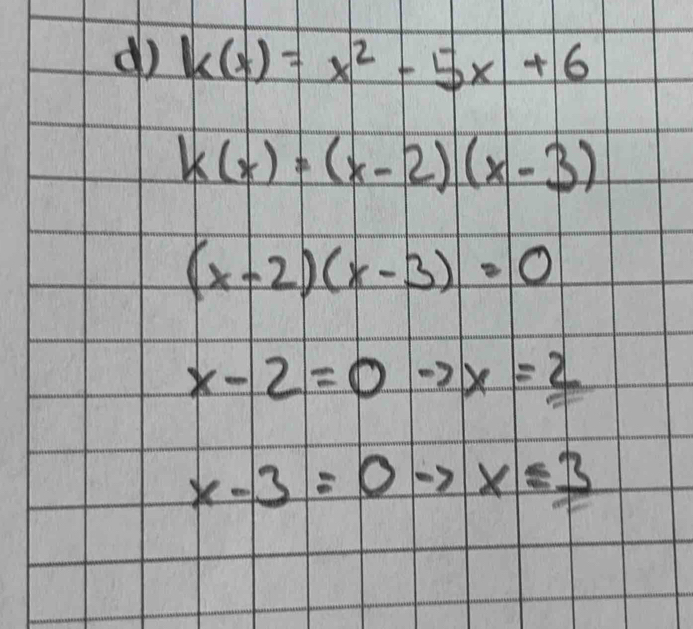 d) k(x) = x² - 5x + 6
k(x) = (x-2)(x-3)
(x-2)(x-3) = 0
x-2 = 0 -> x = 2
x-3 = 0 -> x = 3